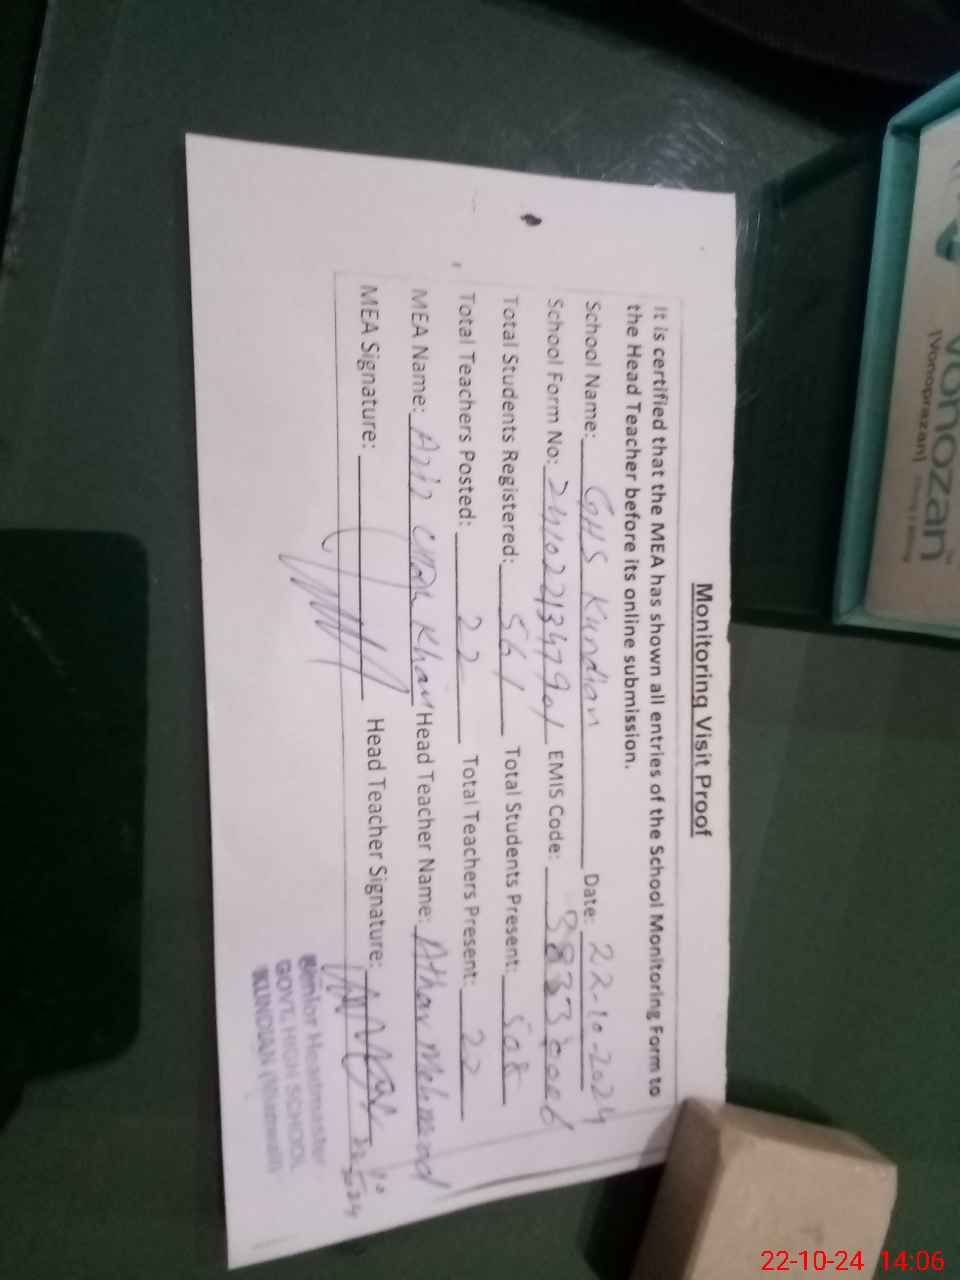 Monitoring Visit Proof
It is certified that the MEA has shown all entries of the School Monitoring Form to
the Head Teacher before its online submission.
School Name: GHS Kundian Date: 22-10-2024
School Form No: EMIS Code:
Total Students Registered: 561 Total Students Present: 508
Total Teachers Posted: 22 Total Teachers Present: 22
MEA Name: Khan Head Teacher Name: Athar Mehmood
MEA Signature: Head Teacher Signature:
Senior Headmaster
GOVT. HIGH SCHOOL
KUNDIAN (Mianwali)
vonozan
[Vonoprazan]
22-10-24 14:06